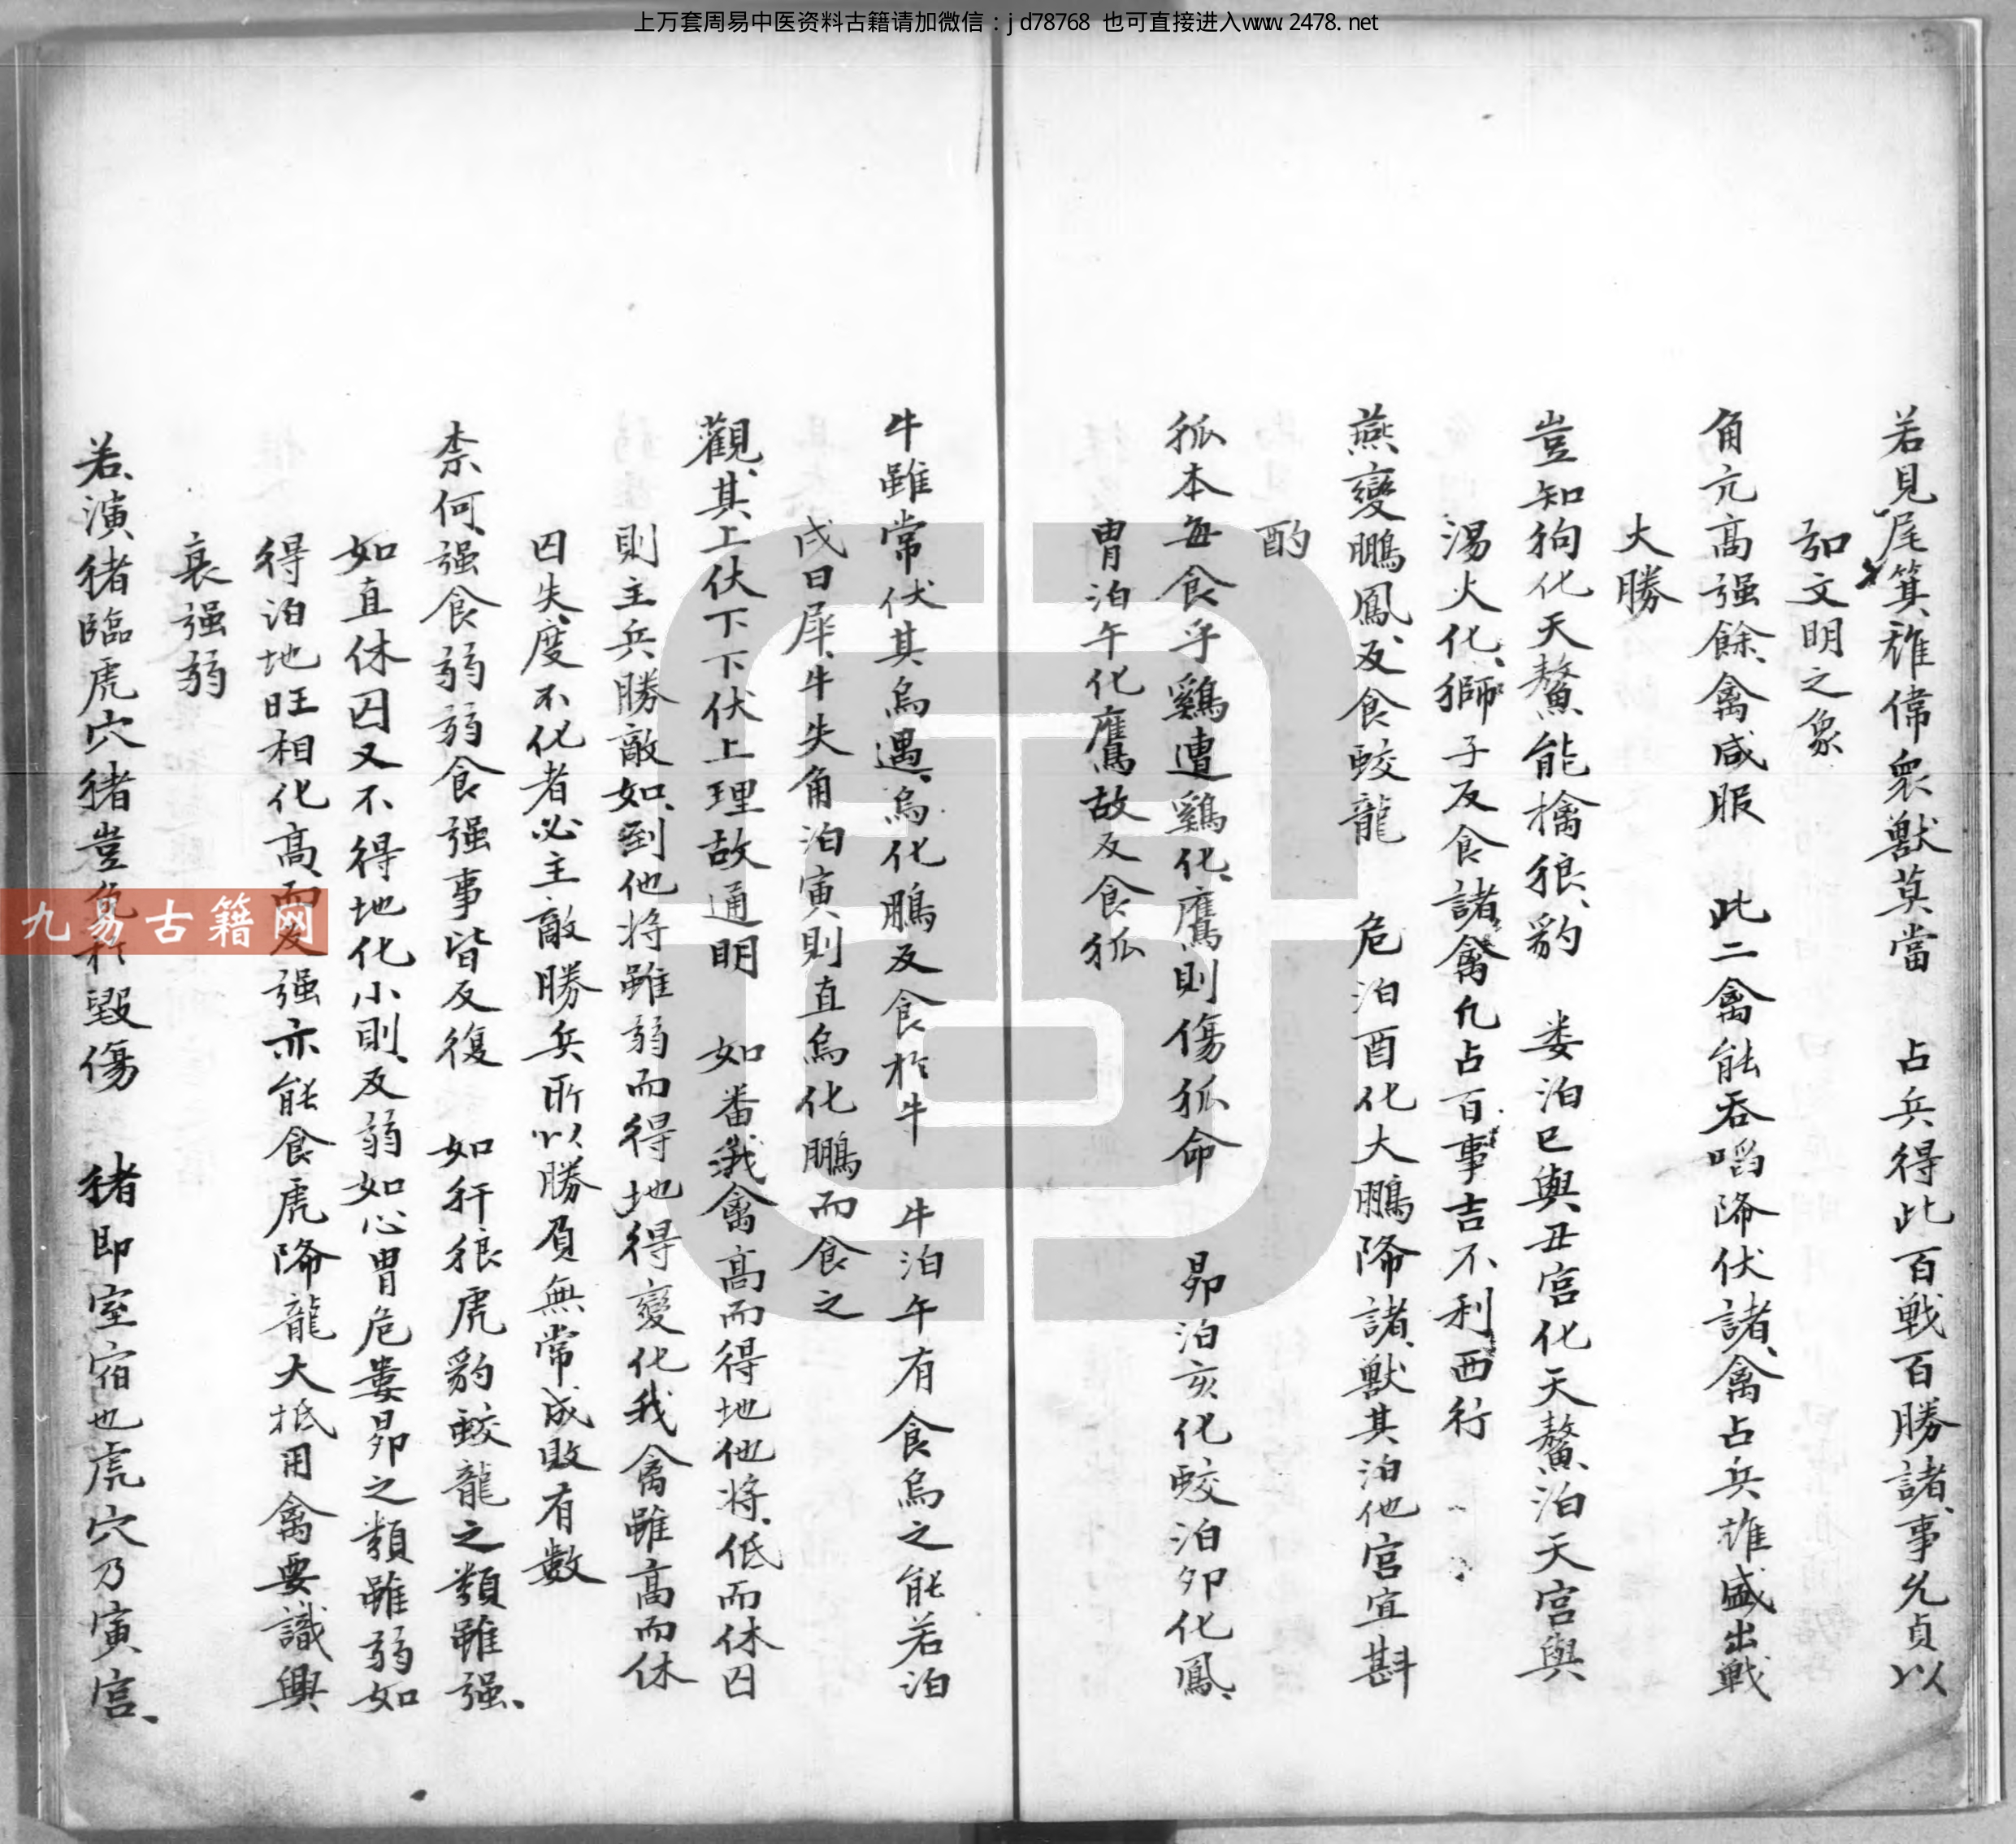 上万套周易中医资料古籍请加微信：jd78768 也可直接进入www.2478.net
若見尾箕稚偉衆獸莫當 占兵得此百戦百勝諸事允貞以
弘文明之象
角亢高强餘禽咸服 此二禽能吞啗降伏諸禽占兵雄盛出戦
大勝
豈知狗化天鰲能擒狼豹 娄泊巳與丑宫化天鰲泊天宫與
湯火化獅子反食諸禽凢占百事吉不利西行
燕變鵬鳳反食蛟龍 危泊酉化大鵬降諸獸其泊他宫宜斟
酌
狐本每食乎鷄遭鷄化鷹則傷狐命 昴泊亥化蛟泊夘化鳳
胃泊午化鷹故反食狐
牛雖常伏其烏遇烏化鵬反食於牛 牛泊午有食烏之能若泊
戌日犀牛失角泊寅則直烏化鵬而食之
觀其上伏下下伏上理故通明 如番我禽高而得地他将低而休囚
則主兵勝敵如到他将雖弱而得地得變化我禽雖高而休
囚失度不化者必主敵勝兵所以勝負無常成敗有數
柰何强食弱弱食强事皆反復 如犴狼虎豹蛟龍之類雖强
如直休囚又不得地化小則反弱如心胃危婁昴之類雖弱如
得泊地旺相化高而反强亦能食虎降龍大抵用禽要識興
衰强弱
若演猪臨虎穴猪豈免於毀傷 猪即室宿也虎穴乃寅宫
九易古籍网